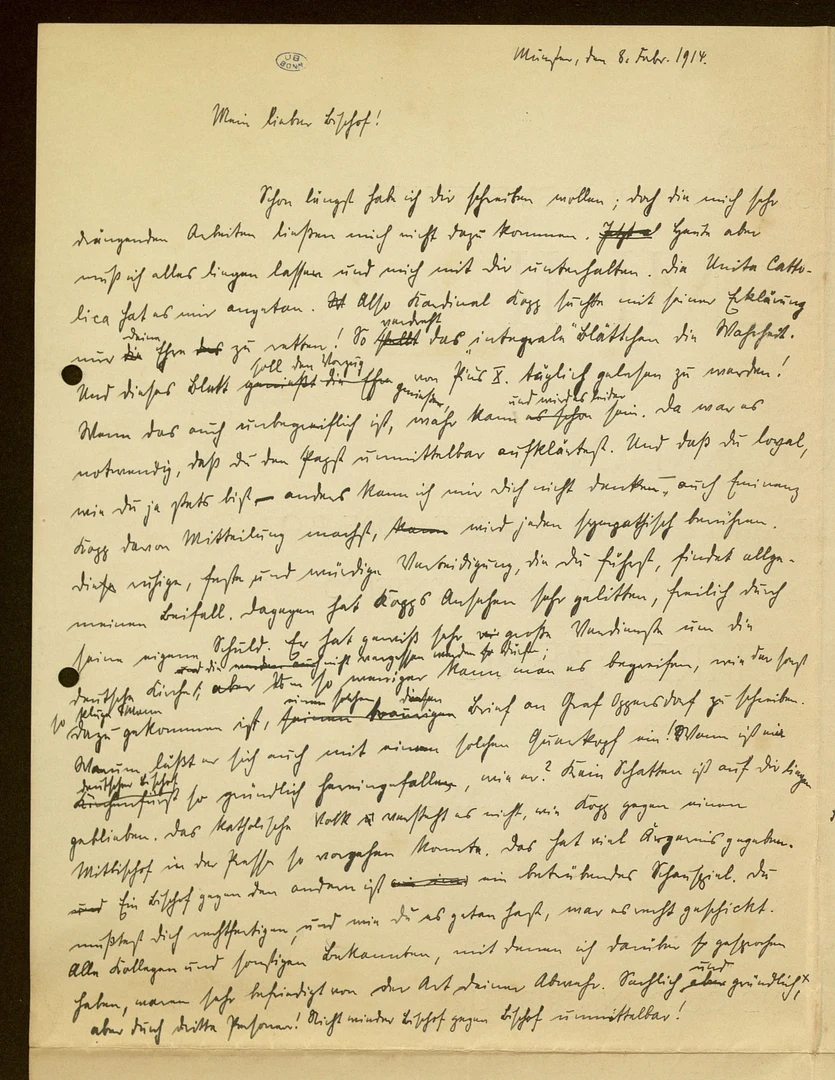 UB
BONN
Münster, den 8. Febr. 1914.
Mein lieber Bischof!
Schon längst hab ich dir schreiben wollen; doch die mich sehr
drängenden Arbeiten ließen mich nicht dazu kommen. Heute aber
muß ich alles liegen lassen und mich mit dir unterhalten. Die Unita Catto-
lica hat es mir angetan. Also Kardinal Kopp suchte mit seiner Erklärung
deine verdreht
nur die Ehre des zu retten! So stellt das "integrale" Blättchen die Wahrheit.
soll den Vorzug
Und dieses Blatt genießt die Ehre von Pius X. täglich gelesen zu werden!
genießen, und wird es leider
Wenn das auch unbegreiflich ist, wahr kann es schon sein. Da war es
notwendig, daß du den Papst unmittelbar aufklärtest. Und daß du loyal,
wie du ja stets bist, – anders kann ich mir dich nicht denken –, auch Eminenz
Kopp davon Mitteilung machst, kann wird jeden sympathisch berühren.
Diese ruhige, feste und würdige Verteidigung, die du führst, findet allge-
meinen Beifall. Dagegen hat Kopps Ansehen sehr gelitten, freilich durch
seine eigene Schuld. Er hat gewiß sehr große Verdienste um die
und die werden auch nicht vergessen werden dürfen;
deutsche Kirche, aber um so weniger kann man es begreifen, wie der sonst
so kluge Mann einen solchen diesen
dazu gekommen ist, seinen traurigen Brief an Graf Oppersdorf zu schreiben.
Warum läßt er sich auch mit einem solchen Querkopf ein! Wann ist ein
deutscher Bischof
Kirchenfürst so gründlich hereingefallen, wie er? Kein Schatten ist auf dir liegen
geblieben. Das katholische Volk versteht es nicht, wie Kopp gegen einen
Mitbischof in der Presse so vorgehen konnte. Das hat viel Ärgernis gegeben.
und Ein Bischof gegen den andern ist ein betrübendes Schauspiel. Du
mußtest dich rechtfertigen, und wie du es getan hast, war es recht geschickt.
Alle Kollegen und sonstigen Bekannten, mit denen ich darüber gesprochen
und
haben, waren sehr befriedigt von der Art deiner Abwehr. Sachlich aber gründlich,
aber durch dritte Personen! Nicht wieder Bischof gegen Bischof unmittelbar!